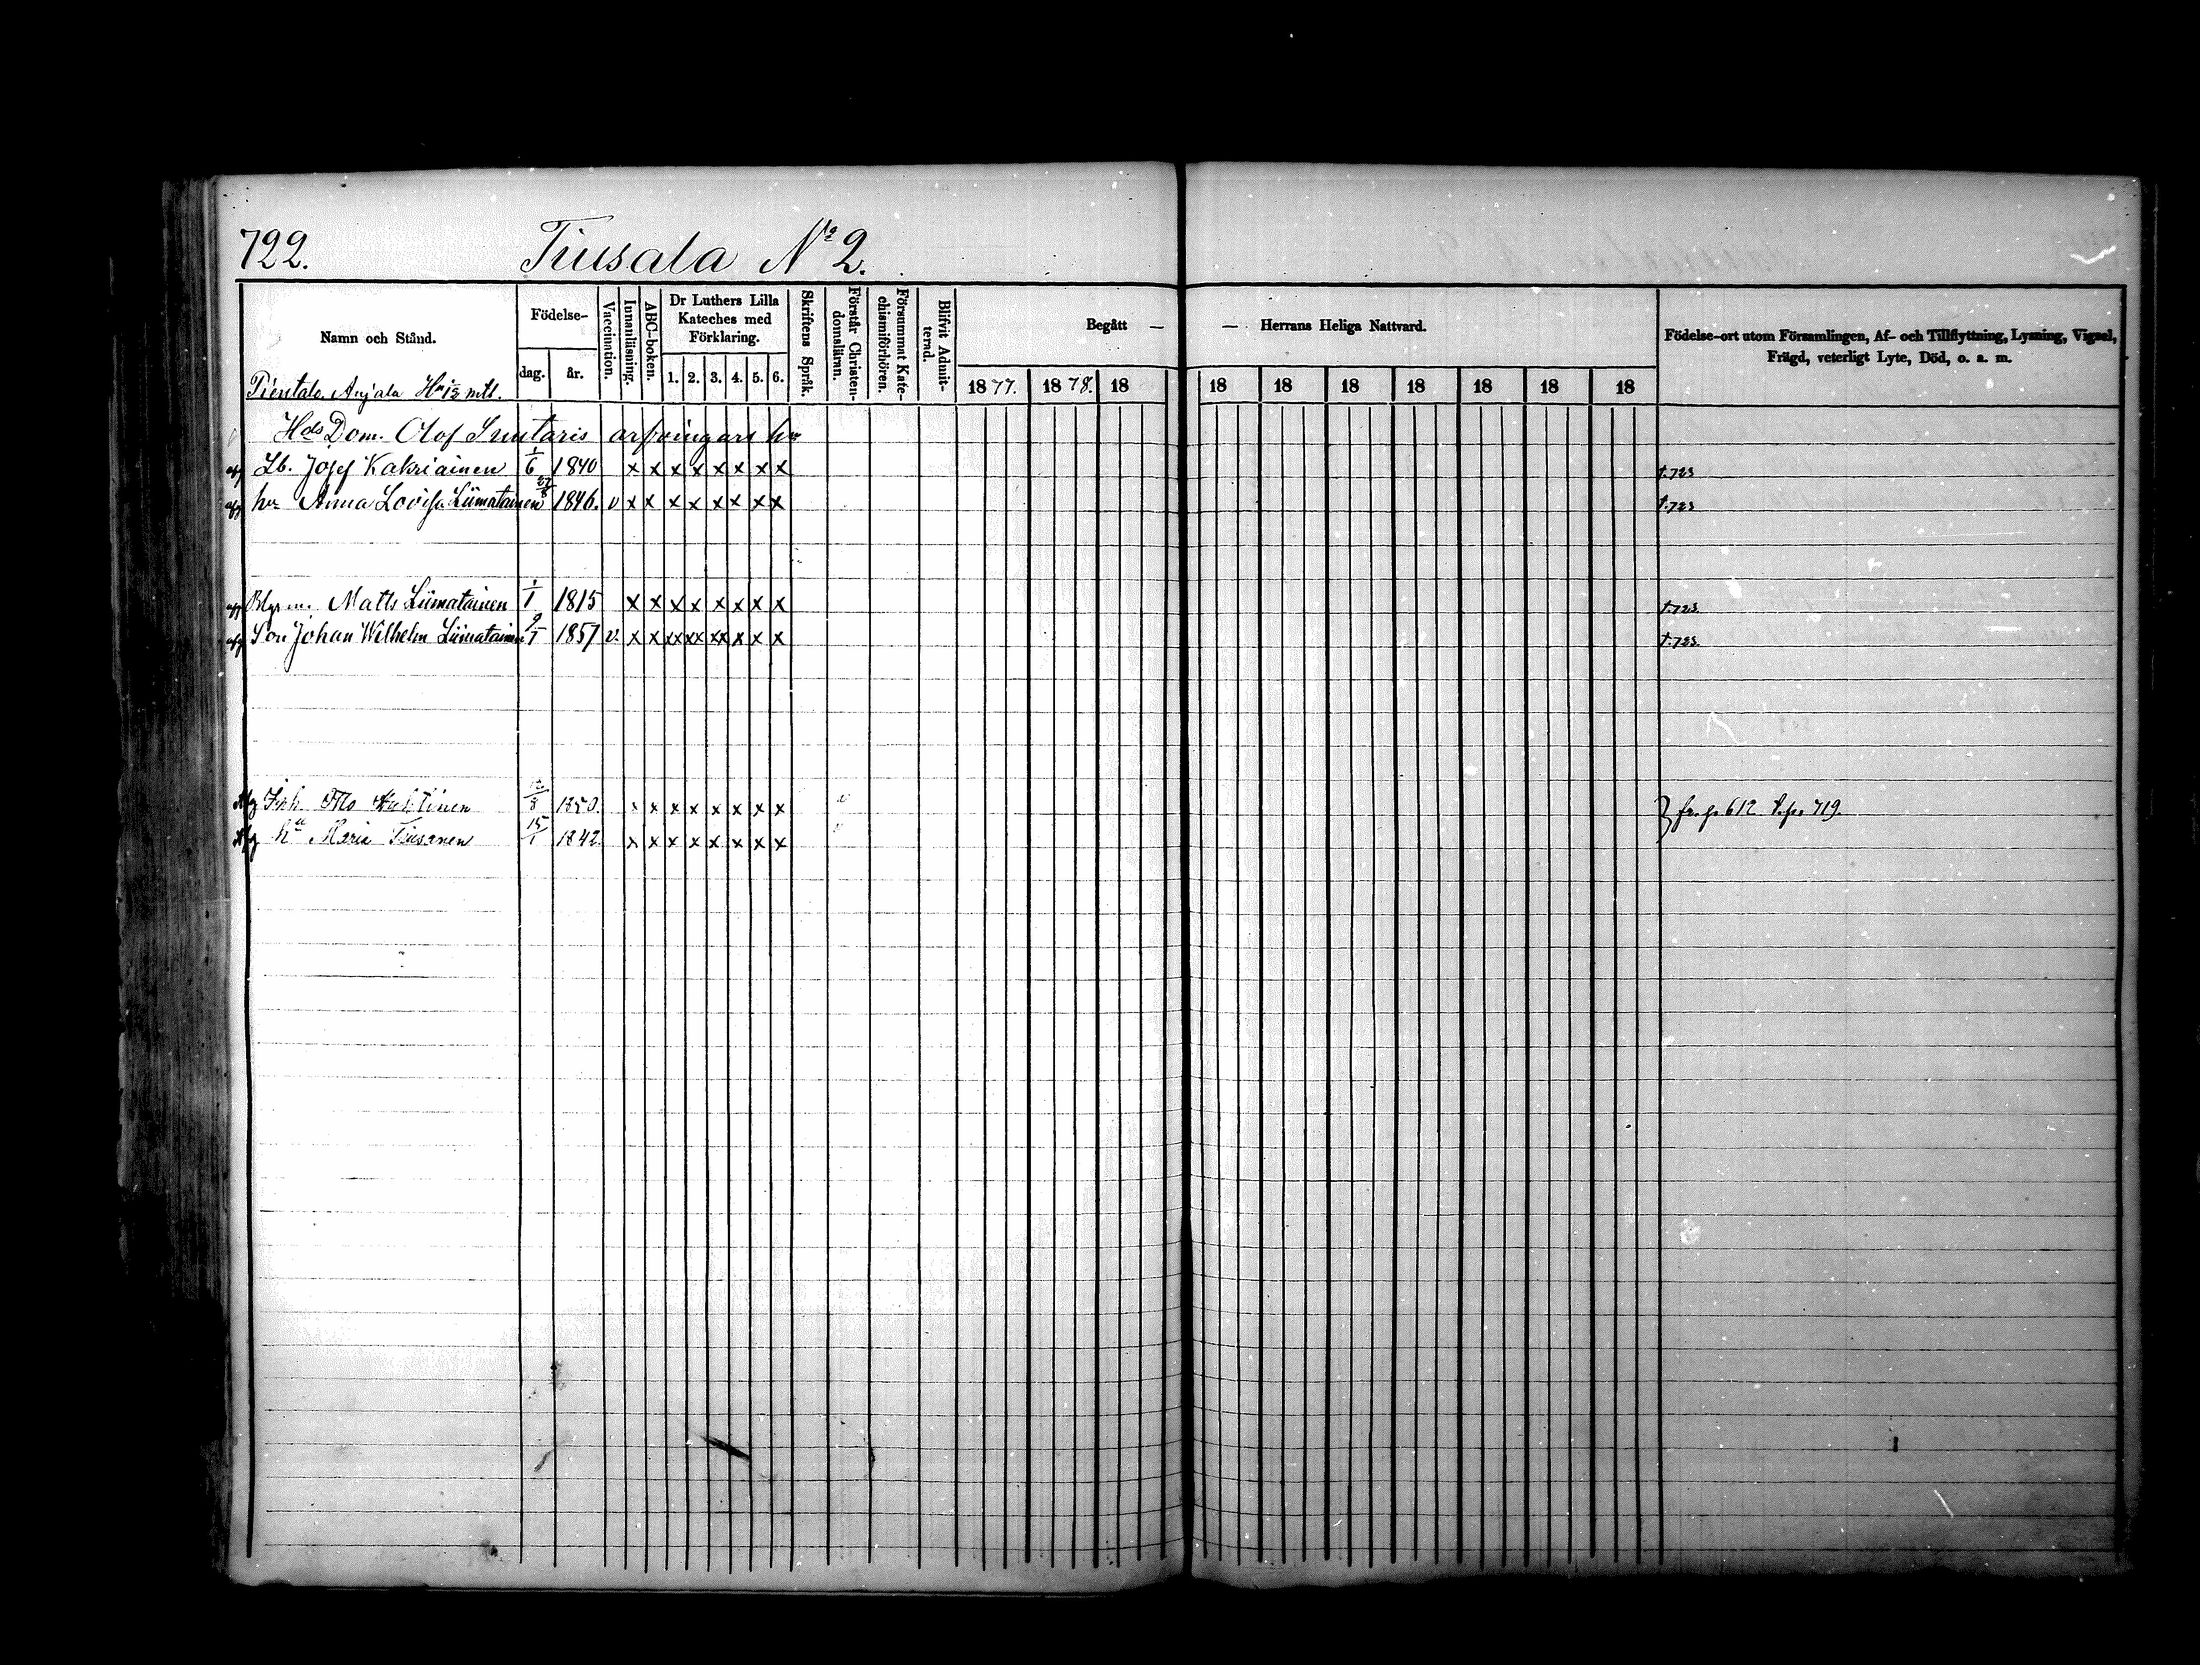 722. Tiusala No 2.
Namn och Stånd.
Födelse-
dag. år.
Vaccination.
Innanläsning.
ABC-boken.
Dr Luthers Lilla
Kateches med
Förklaring.
1. 2. 3. 4. 5. 6.
Skriftens Språk.
Förstår Christen-
domsläran.
Försummat Kate-
chismiförhören.
Blifvit Admit-
terad.
Begått — — Herrans Heliga Nattvard.
1877. 1878. 18 18 18 18 18 18 18 18
Födelse-ort utom Församlingen, Af- och Tillflyttning, Lysning, Vigsel,
Frägd, veterligt Lyte, Död, o. s. m.
Anjala 1/2 mtl.
Dom. Olof arfvingars
Lb. Josef Kakriainen 1/6 1840 x x x x x x x x t. 723
hu Anna Lovisa Liimatainen 1846. v x x x x x x x x t. 723
Matts Liimatainen 1/1 1815 x x x x x x x x t. 723.
Son Johan Wilhelm Liimatainen 9/1 1857 v. x x xx xx xx x x x t. 723.
Inh. Huhtinen 1850. x x x x x x x x } fr. p. 612 t. p. 719.
Afg hu Maria Tiusanen 15/1 1842 x x x x x x x x